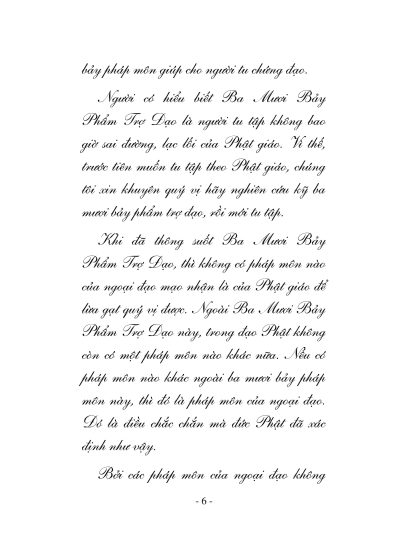 bảy pháp môn giúp cho người tu chứng đạo.
Người có hiểu biết Ba Mươi Bảy
Phẩm Trợ Đạo là người tu tập không bao
giờ sai đường, lạc lối của Phật giáo. Vì thế,
trước tiên muốn tu tập theo Phật giáo, chúng
tôi xin khuyên quý vị hãy nghiên cứu kỹ ba
mươi bảy phẩm trợ đạo, rồi mới tu tập.
Khi đã thông suốt Ba Mươi Bảy
Phẩm Trợ Đạo, thì không có pháp môn nào
của ngoại đạo mạo nhận là của Phật giáo để
lừa gạt quý vị được. Ngoài Ba Mươi Bảy
Phẩm Trợ Đạo này, trong đạo Phật không
còn có một pháp môn nào khác nữa. Nếu có
pháp môn nào khác ngoài ba mươi bảy pháp
môn này, thì đó là pháp môn của ngoại đạo.
Đó là điều chắc chắn mà đức Phật đã xác
định như vậy.
Bởi các pháp môn của ngoại đạo không
- 6 -